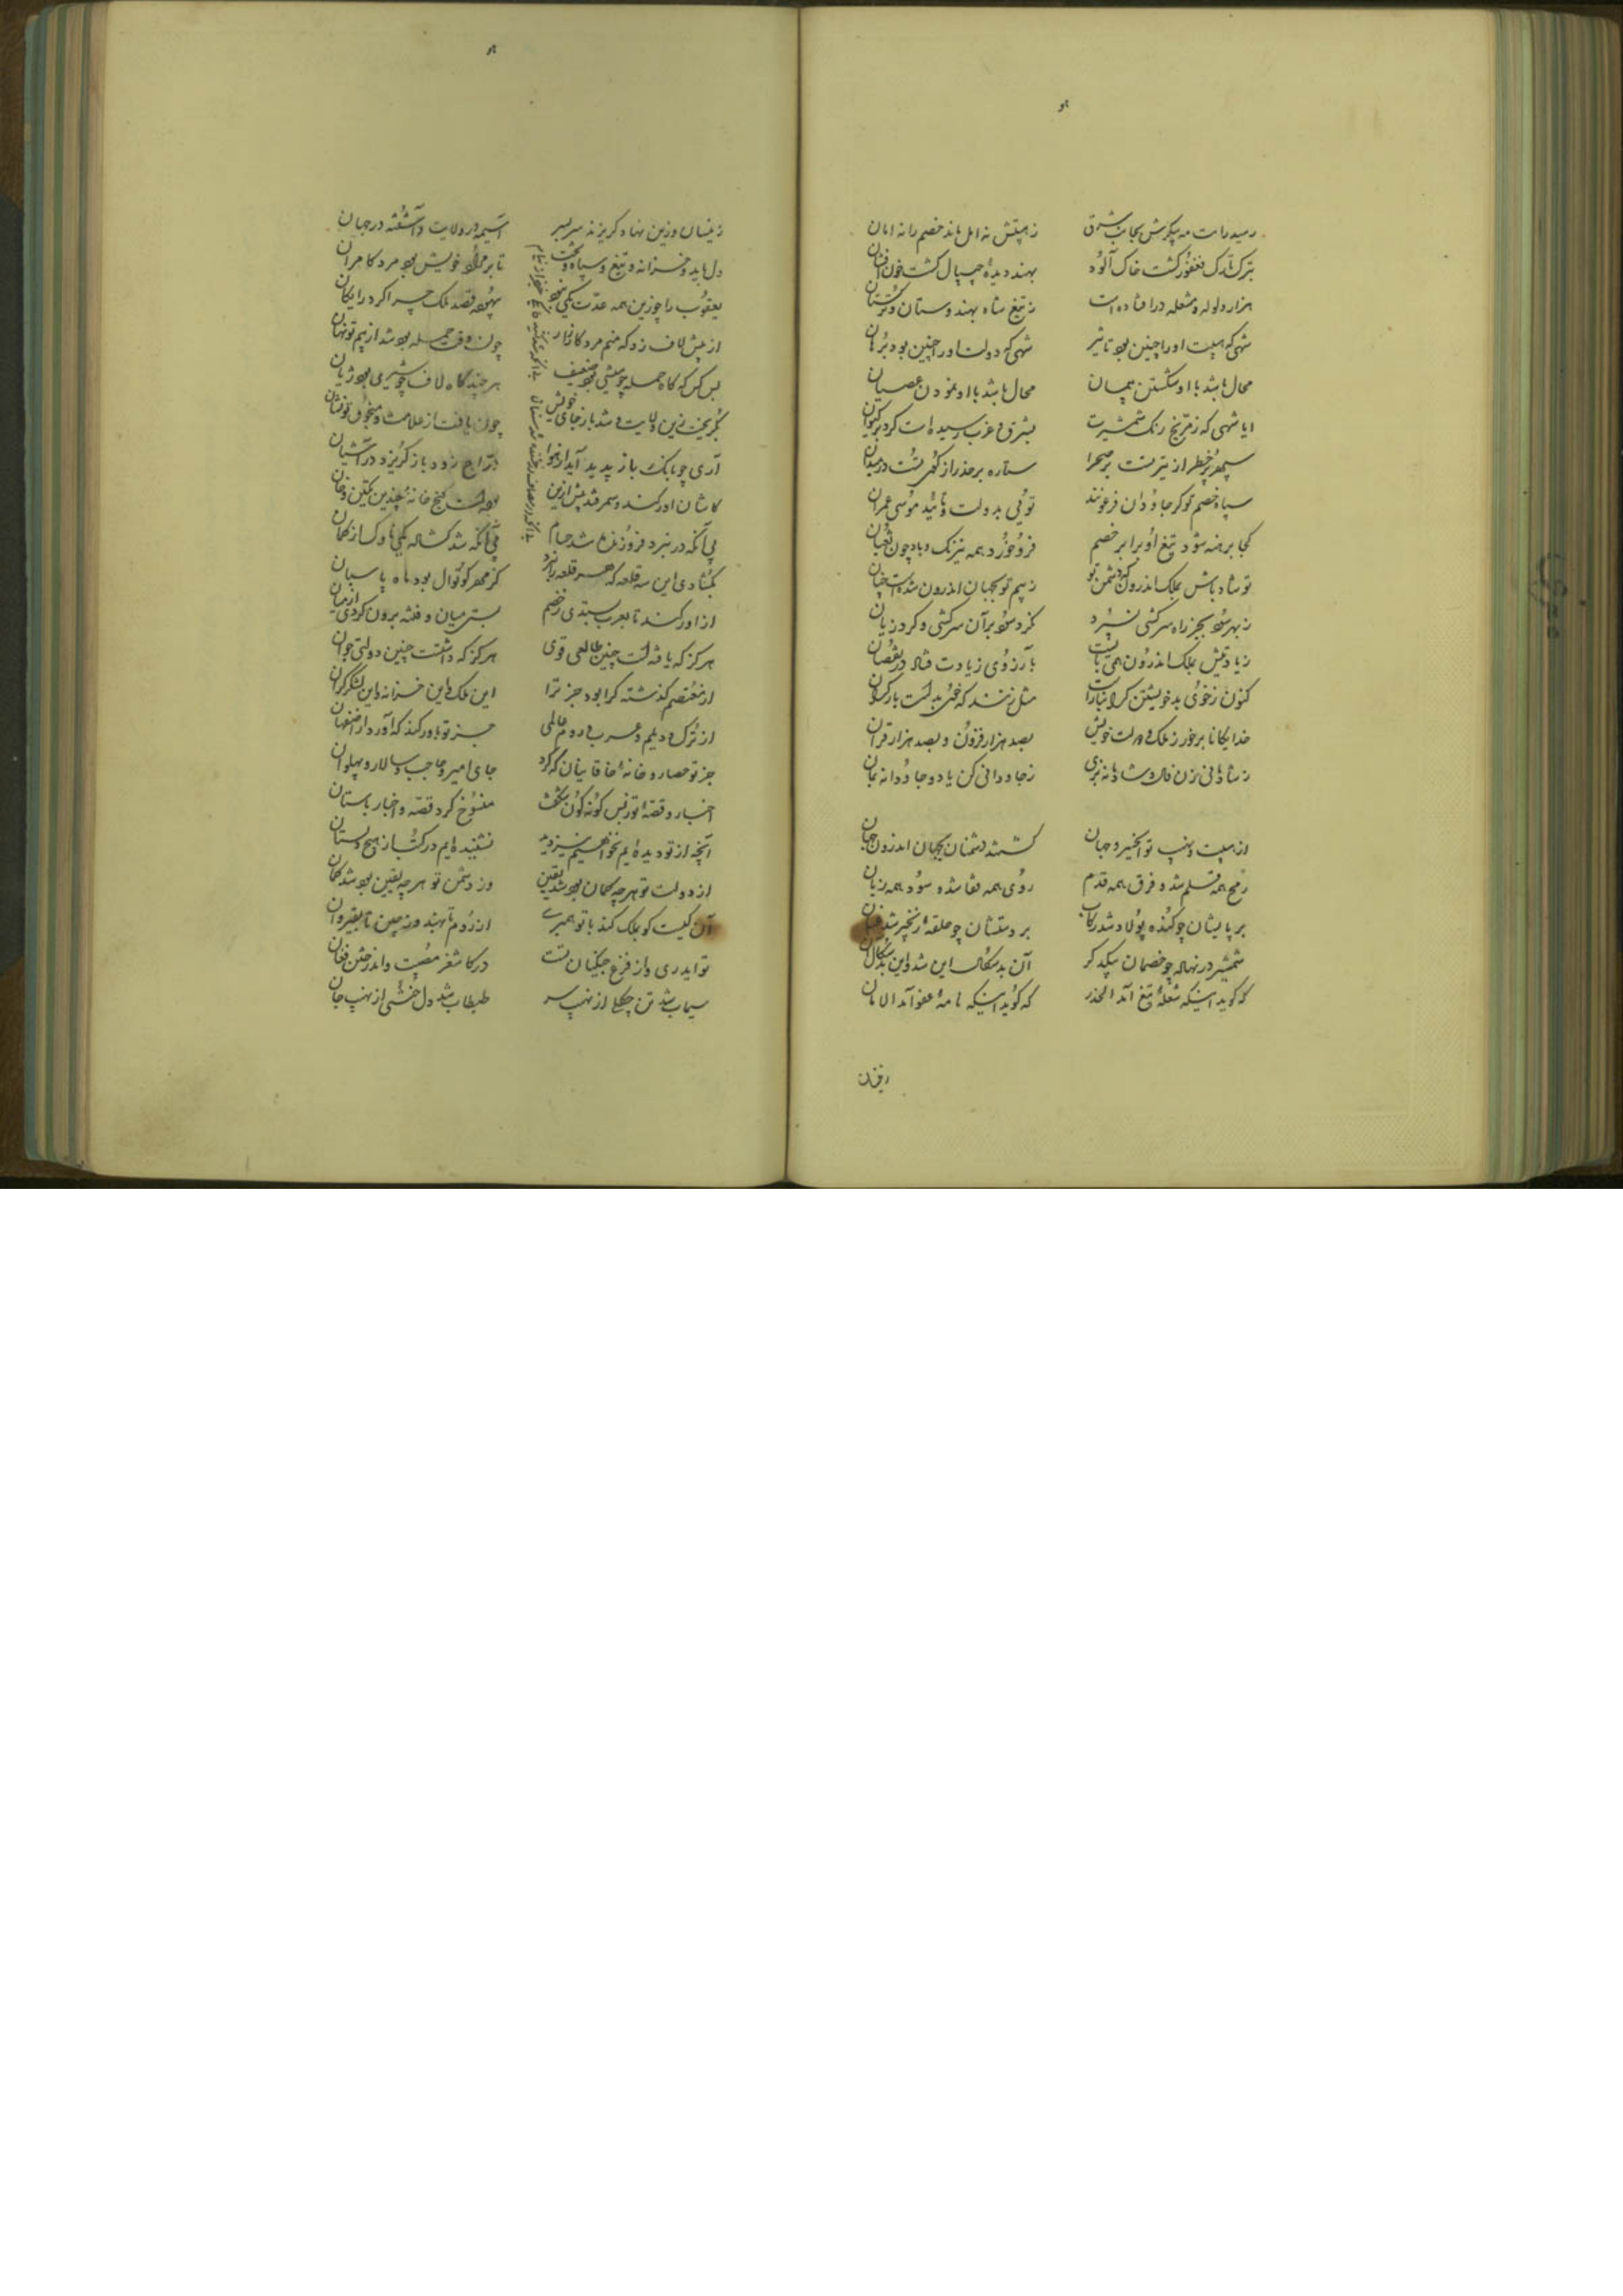 رسید رایت مه پیکرش بجانب شرق
ز هیبتش نه امل ماند خصم را نه امان
بترک تارک فغفور گشت خاک آلود
بهند دیده چیپال گشت خون افشان
هزار ولوله و مشعله در افتاده است
ز تیغ شاه بهندوستان و ترکستان
شهی که هیبت او را چنین بود تاثیر
شهی که دولت او را چنین بود برهان
محال باشد با او شکستن پیمان
محال باشد با او نمودن عصیان
ایا شهی که ز مریخ رنگ شمشیرت
بشرق و غرب رسیده است گرد بر کیوان
سپهر پر خطر از تیر تست بر صحرا
ستاره بر حذر از گوی تست در میدان
سپاه خصم تو گر جاودان فرعونند
توئی بدولت و تائید موسی عمران
کجا برهنه شود تیغ او برابر خصم
فرو خورد همه نیرنگ و باد چون ثعبان
تو شاد باش بملک اندرون که دشمن تو
ز بیم تو بجهان اندرون شده است چنان
ز بهر سود بجز راه سرکشی نسپرد
نکرد سود بر آن سرکشی و کرد زیان
زیادتیش بملک اندرون همی بایست
بآرزوی زیادت فتاد در نقصان
کنون ز خوی بد خویشتن گرانبار است
مثل زنند که خوی بد است بار گران
خدایگانا برخور ز ملک و دولت خویش
بصد هزار فزون و بصد هزار قران
ز شادمانی زن فال و شادمانه بزی
ز جاودانی کن یاد و جاودانه بمان
از هیبت و نهیب تو ای خسرو جهان
گشتند دشمنان بجهان اندرون جهان
رمح همه قلم شده فرق همه قدم
روی همه قفا شده سود همه زیان
بر پایشان چو کنده پولاد شد رکاب
بر دستشان چو حلقه زنجیر شد عنان
شمشیر در نهاله چو خصمان بیکدگر
آن بدسگال این شد و این بدسگال آن
که گوید اینکه شعله تیغ آمد الحذر
که گوید اینکه نامه عفو آمد الامان
زینسان وزین نهاد گریزند سر بسر
آسیمه در ولایت و آشفته در جهان
دل باید و خزانه و تیغ و سپاه و بخت
تا بر مراد خویش بود مرد کامران
یعقوب را چو زین همه عدت یکی نبود
بیهوده قصد ملک چرا کرد رایگان
از پیش لاف زد که منم مرد کارزار
چون وقت حمله بود شد از بیم تو نهان
بس کس که گاه حمله چو میشی بود ضعیف
هر چند گاه لاف چو شیری بود ژیان
بگریخت زین ولایت و شد باز جای خویش
چون یافت از علامت و منجوق تو نشان
آری چو بانگ باز پدید آید از هوا
دراج زود باز گریزد در آشیان
کاشان اورکند و سمرقند پیش ازین
بوده است گنج خانه چندین تکین و خان
بی آنکه در نبرد فروزنده شد حسام
بی آنکه شد گشاده یکی ناوک از کمان
بگشادی این سه قلعه که هر قلعه را بود
کز مهر کوتوال بود ماه پاسبان
از اورکند تا بعرب بستدی ز خصم
بستی میان و فتنه برون کردی از میان
هرگز که یافته است چنین طالعی قوی
هرگز که داشتست چنین دولتی جوان
از معتصم گذشته کرا بود جز ترا
این ملک و این خزانه و این لشکر گران
از ترک و دیلم و عرب و روم عالمی
جز تو باورکند که آورد از اصفهان
جز تو حصار و خانه خاقانیان که کرد
جای امیر و حاجب و سالار و پهلوان
اخبار و قصه تو ز بس گونه گون شگفت
منسوخ کرد قصه و اخبار باستان
آنچه از تو دیده ایم بخواهیم نیز دید
نشنیده ایم در کتب از هیچ داستان
از دولت تو هر چه گمان بود شد یقین
وز دشمن تو هر چه یقین بود شد گمان
آن کیست کو بملک کند با تو همسری
از روم تا بهند وز چین تا بقیروان
تو ایدری و از فزع جنگیان تست
در کاشغر مصیبت و اندر ختن فغان
سیماب شد تن چگلی از نهیب سر
طبطاب شد دل ختنی از نهیب جان
زینسان